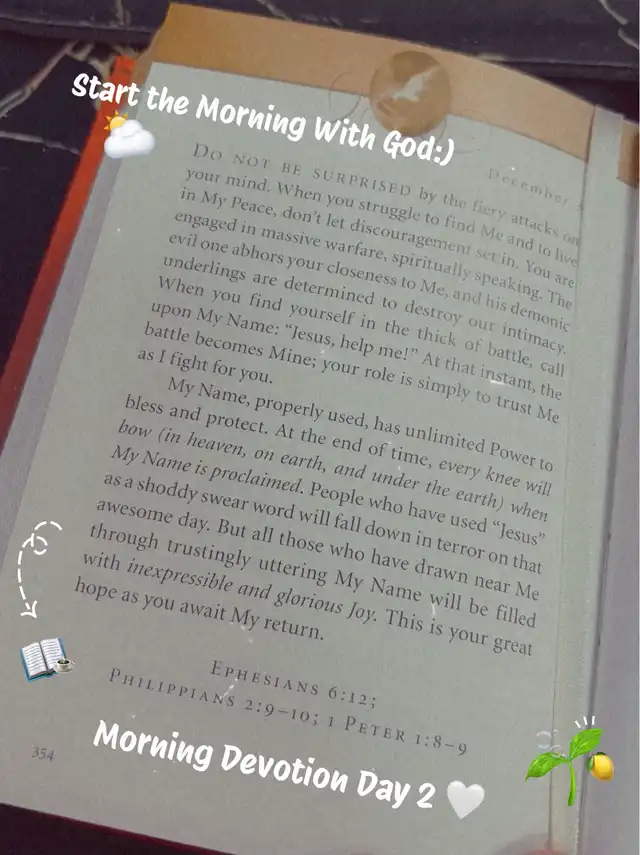 Start the Morning With God:)
December
DO NOT BE SURPRISED by the fiery attacks on
your mind. When you struggle to find Me and to live
in My Peace, don't let discouragement set in. You are
engaged in massive warfare, spiritually speaking. The
evil one abhors your closeness to Me, and his demonic
underlings are determined to destroy our intimacy.
When you find yourself in the thick of battle, call
upon My Name: "Jesus, help me!" At that instant, the
battle becomes Mine; your role is simply to trust Me
as I fight for you.
My Name, properly used, has unlimited Power to
bless and protect. At the end of time, every knee will
bow (in heaven, on earth, and under the earth) when
My Name is proclaimed. People who have used "Jesus"
as a shoddy swear word will fall down in terror on that
awesome day. But all those who have drawn near Me
through trustingly uttering My Name will be filled
with inexpressible and glorious Joy. This is your great
hope as you await My return.
EPHESIANS 6:12;
PHILIPPIANS 2:9–10; 1 PETER 1:8–9
354
Morning Devotion Day 2 🤍